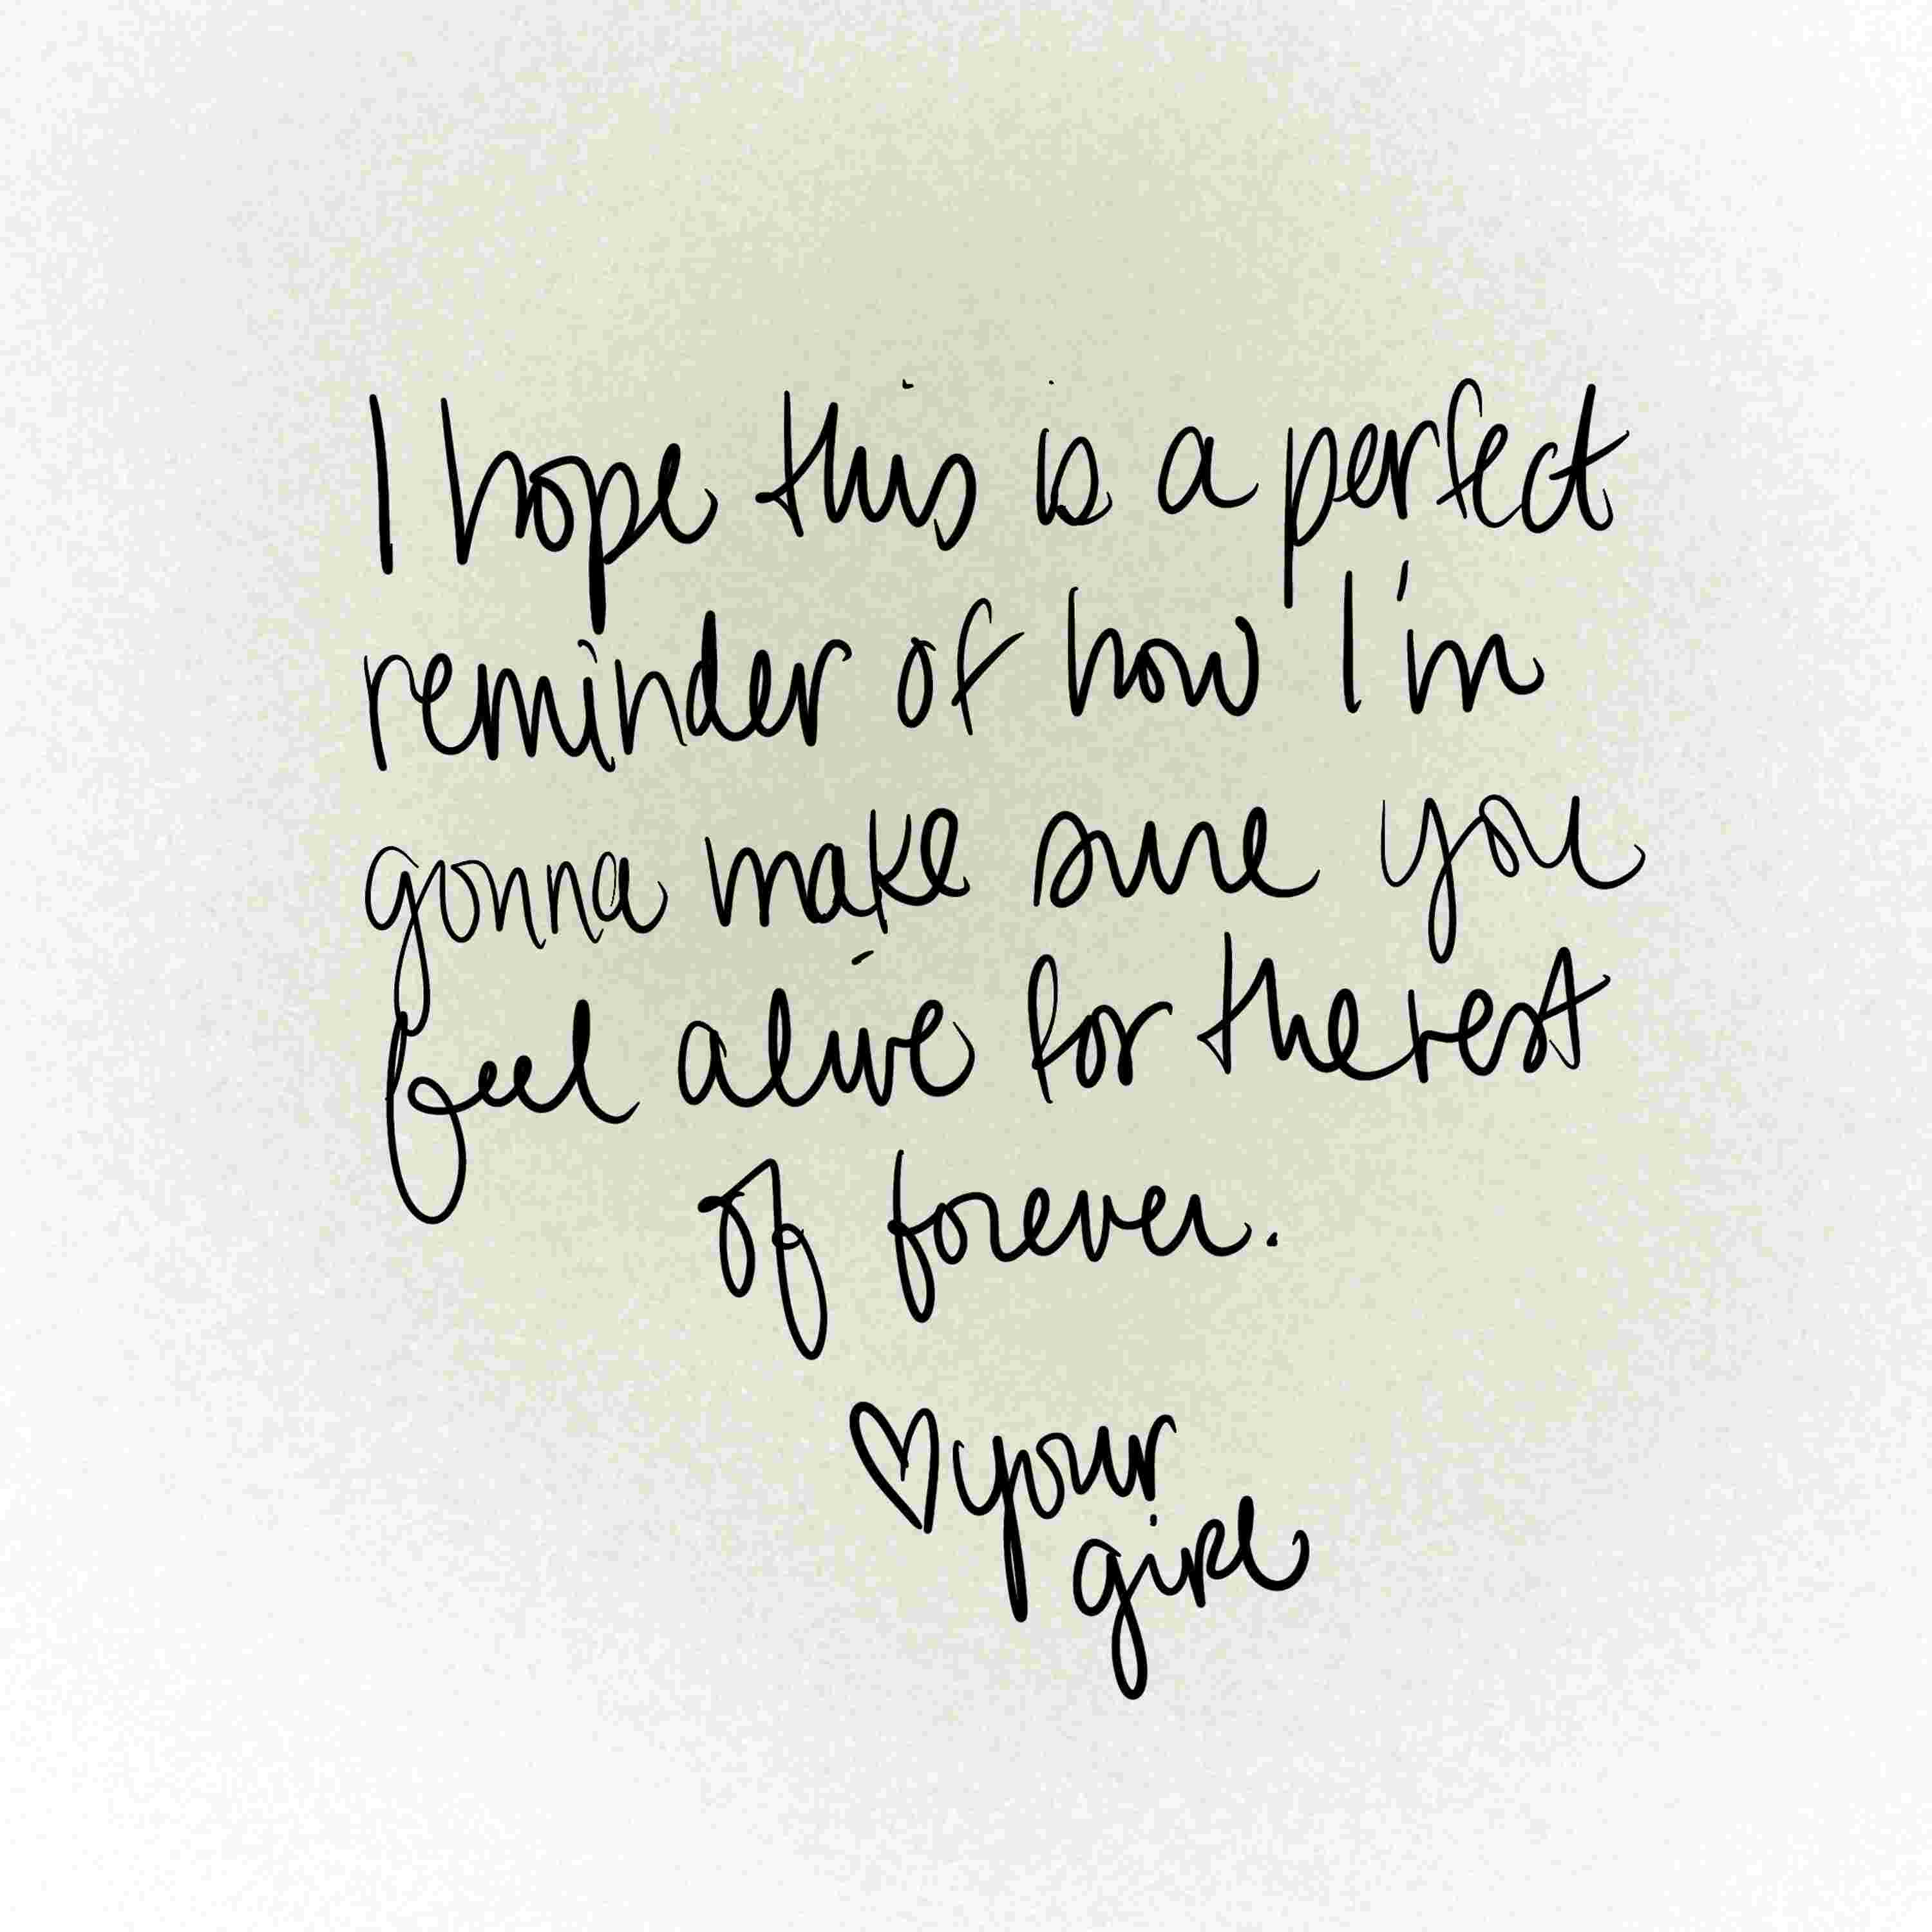 I hope this is a perfect
reminder of how I'm
gonna make sure you
feel alive for the rest
of forever.
♡ your
girl